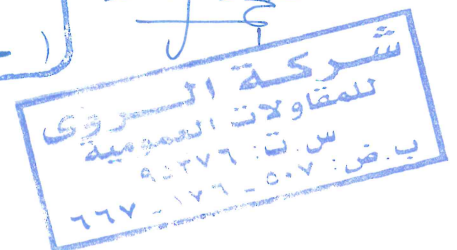 شركة الرؤى
للمقاولات العمومية
س.ت: ٩٤٣٧٦
ب.ض: ٥٠٧ - ١٧٦ - ٦٦٧